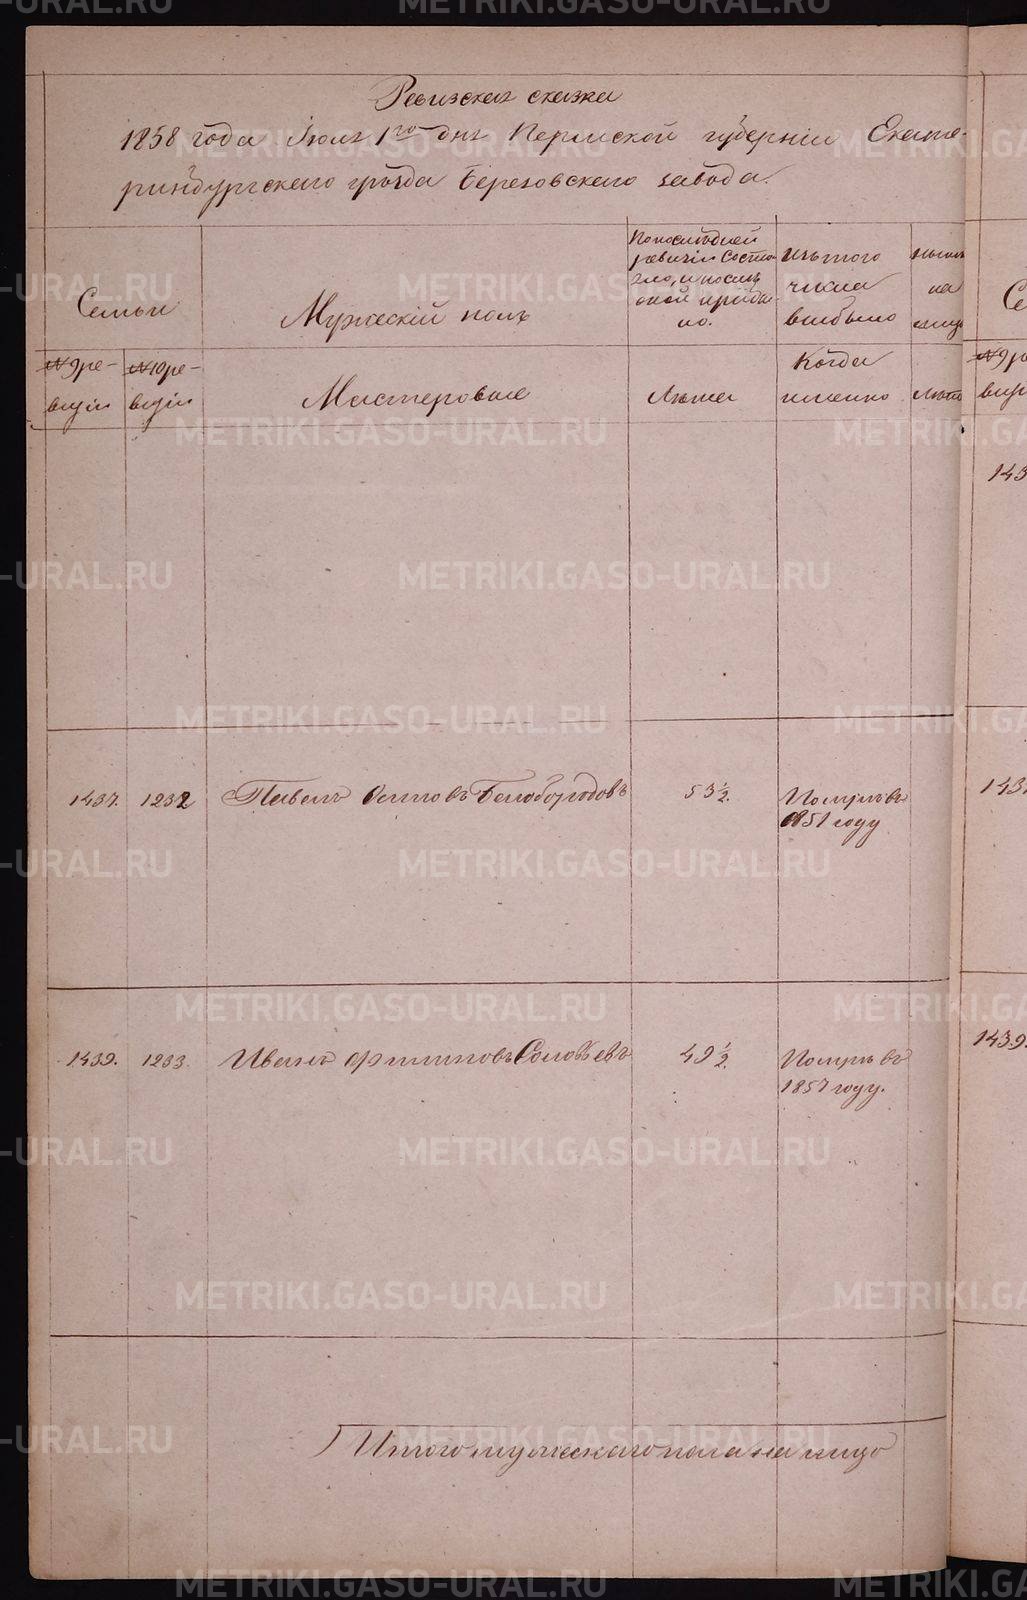 Ревизская сказка
1858 года Июля 1го дня Пермской губернии Екате-
ринбургского уезда Березовского завода.
Семьи
Мужеский полъ
По последней
ревизии состо-
яло, и после
оной прибы-
ло.
Изъ того
числа
выбыло
Ныне
на
лицо
Се
№ 9 ре-
визии
№ 10 ре-
визии
Мастеровые
Лета
Когда
именно
Лета
№ 9 ре
визи
143
1437.
1232
Павелъ Осиповъ Белобородовъ
53 1/2.
Померъ въ
1851 году
143
1439.
1233.
Иванъ Филиповъ Соловьевъ
49 1/2.
Померъ въ
1857 году.
1439.
Итого мужеского пола на лицо
METRIKI.GASO-URAL.RU